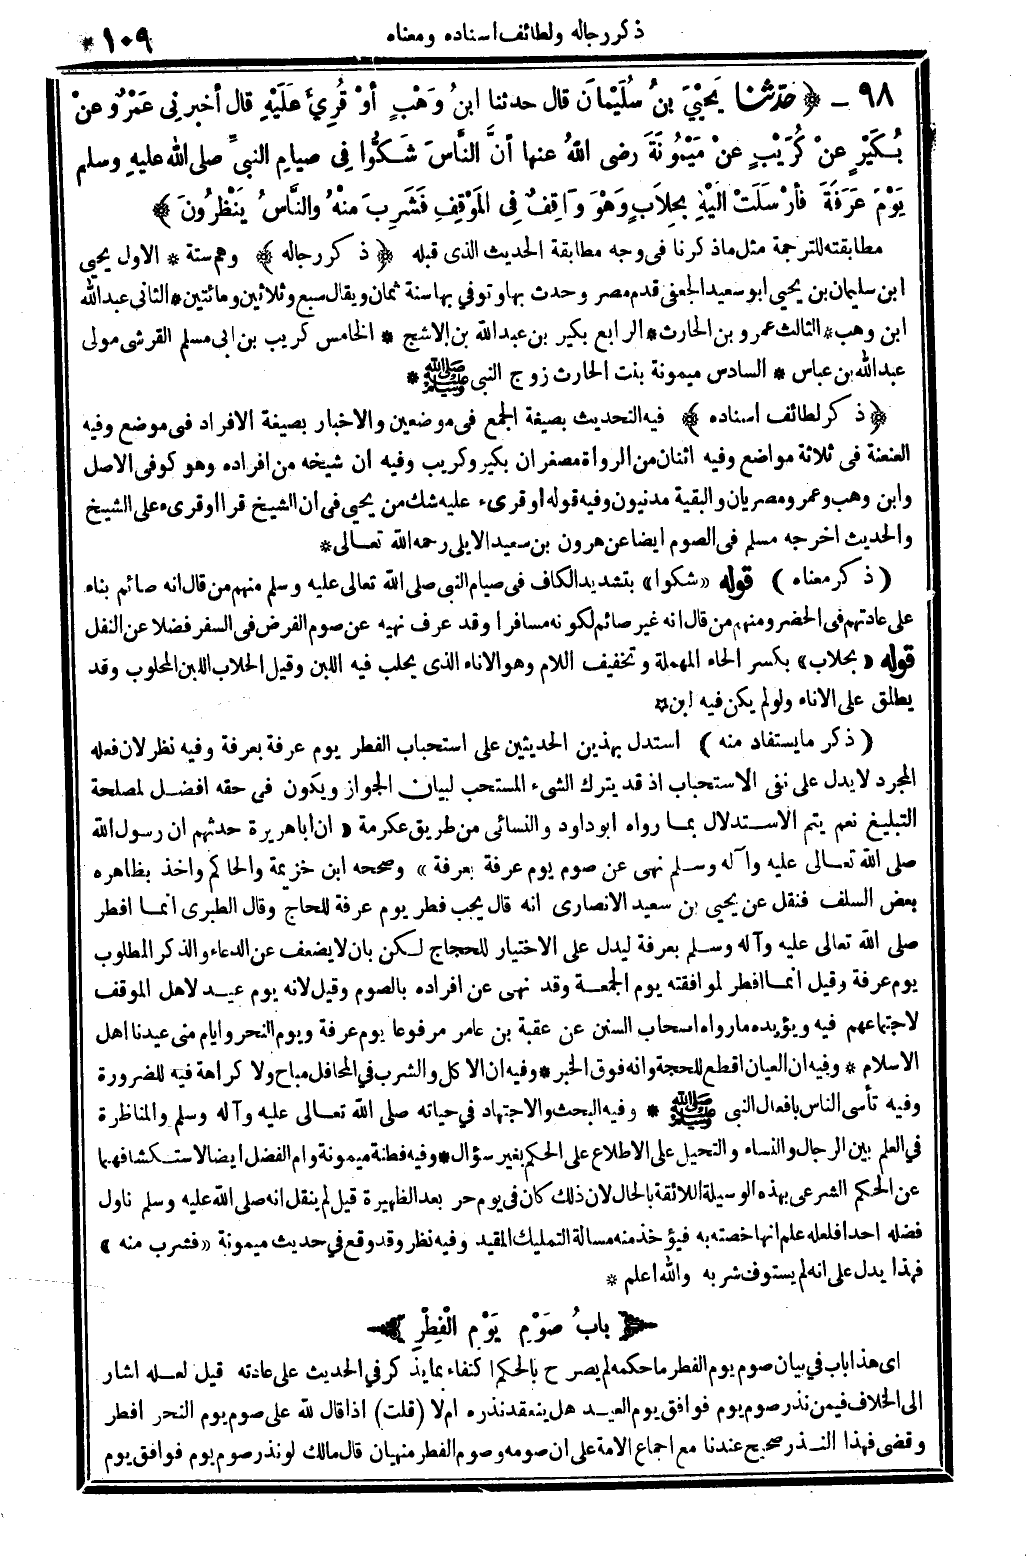 ذكر رجاله ولطائف اسناده ومعناه
* ١٠٩
٩٨ - ﴿ حَدَّثَنَا يَحْيَىَ بنُ سُلَيْمَانَ قال حدثنا ابنُ وَهْبٍ أوْ قُرِئَ عَلَيْهِ قال أخبرنِى عَمْرٌو عنْ
بُكَيْرٍ عنْ كُرَيْبٍ عنْ مَيْمُونَةَ رضى اللهُ عنها أنَّ النَّاسَ شَكُّوا فِى صيامِ النبىِّ صلى الله عليهِ وسلم
يَوْمَ عَرَفَةَ فأرْسَلَتْ اليْهِ بِحِلَابٍ وهْوَ وَاقِفٌ فِى المَوْقِفِ فَشَرِبَ منهُ والنَّاسُ يَنْظُرُونَ ﴾
مطابقته للترجمة مثل ماذكرنا فى وجه مطابقة الحديث الذى قبله ﴿ ذكر رجاله ﴾ وهم ستة * الاول يحيى
ابن سليمان بن يحيى ابو سعيد الجعفى قدم مصر وحدث بها وتوفي بها سنة ثمان ويقال سبع وثلاثين ومائتين * الثانى عبد الله
ابن وهب * الثالث عمرو بن الحارث * الرابع بكير بن عبد الله بن الاشج * الخامس كريب بن ابى مسلم القرشى مولى
عبد الله بن عباس * السادس ميمونة بنت الحارث زوج النبى ﷺ *
﴿ ذكر لطائف اسناده ﴾ فيه التحديث بصيغة الجمع فى موضعين والاخبار بصيغة الافراد فى موضع وفيه
العنعنة فى ثلاثة مواضع وفيه اثنان من الرواة مصغران بكير وكريب وفيه ان شيخه من افراده وهو كوفى الاصل
وابن وهب وعمرو مصريان والبقية مدنيون وفيه قوله او قرىء عليه شك من يحيى فى ان الشيخ قرا او قرىء على الشيخ
والحديث اخرجه مسلم فى الصوم ايضا عن هرون بن سعيد الايلى رحمه الله تعالى *
( ذكر معناه ) قوله «شكوا» بتشديد الكاف فى صيام النبى صلى الله تعالى عليه وسلم منهم من قال انه صائم بناء
على عادتهم فى الحضر ومنهم من قال انه غير صائم لكونه مسافرا وقد عرف نهيه عن صوم الفرض فى السفر فضلا عن النفل
قوله «بحلاب» بكسر الحاء المهملة وتخفيف اللام وهو الاناء الذى يحلب فيه اللبن وقيل الحلاب اللبن المحلوب وقد
يطلق على الاناء ولو لم يكن فيه لبن *
( ذكر مايستفاد منه ) استدل بهذين الحديثين على استحباب الفطر يوم عرفة بعرفة وفيه نظر لان فعله
المجرد لا يدل على نفى الاستحباب اذ قد يترك الشىء المستحب لبيان الجواز ويكون فى حقه افضل لمصلحة
التبليغ نعم يتم الاستدلال بما رواه ابو داود والنسائى من طريق عكرمة « ان ابا هريرة حدثهم ان رسول الله
صلى الله تعالى عليه وآله وسلم نهى عن صوم يوم عرفة بعرفة » وصححه ابن خزيمة والحاكم واخذ بظاهره
بعض السلف فنقل عن يحيى بن سعيد الانصارى انه قال يجب فطر يوم عرفة للحاج وقال الطبرى انما افطر
صلى الله تعالى عليه وآله وسلم بعرفة ليدل على الاختيار للحجاج لكن بان لا يضعف عن الدعاء والذكر المطلوب
يوم عرفة وقيل انما افطر لموافقته يوم الجمعة وقد نهى عن افراده بالصوم وقيل لانه يوم عيد لاهل الموقف
لاجتماعهم فيه ويؤيده مارواه اصحاب السنن عن عقبة بن عامر مرفوعا يوم عرفة ويوم النحر وايام منى عيدنا اهل
الاسلام * وفيه ان العيان اقطع للحجة وانه فوق الخبر * وفيه ان الاكل والشرب في المحافل مباح ولا كراهة فيه للضرورة
وفيه تأسى الناس بافعال النبى ﷺ * وفيه البحث والاجتهاد في حياته صلى الله تعالى عليه وآله وسلم والمناظرة
في العلم بين الرجال والنساء والتحيل على الاطلاع على الحكم بغير سؤال * وفيه فطنة ميمونة وام الفضل ايضا لاستكشافهما
عن الحكم الشرعى بهذه الوسيلة اللائقة بالحال لان ذلك كان فى يوم حر بعد الظهيرة قيل لم ينقل انه صلى الله عليه وسلم ناول
فضله احدا فلعله علم انها خصته به فيؤخذ منه مسالة التمليك المقيد وفيه نظر وقد وقع في حديث ميمونة «فشرب منه »
فهذا يدل على انه لم يستوف شربه والله اعلم *
﴿ بابُ صَوْمِ يَوْمِ الْفِطْرِ ﴾
اى هذا باب في بيان صوم يوم الفطر ما حكمه لم يصرح بالحكم اكتفاء بما يذكر في الحديث على عادته قيل لعله اشار
الى الخلاف فيمن نذر صوم يوم فوافق يوم العيد هل ينعقد نذره ام لا (قلت) اذا قال لله على صوم يوم النحر افطر
وقضى فهذا النذر صحيح عندنا مع اجماع الامة على ان صومه وصوم الفطر منهيان قال مالك لو نذر صوم يوم فوافق يوم